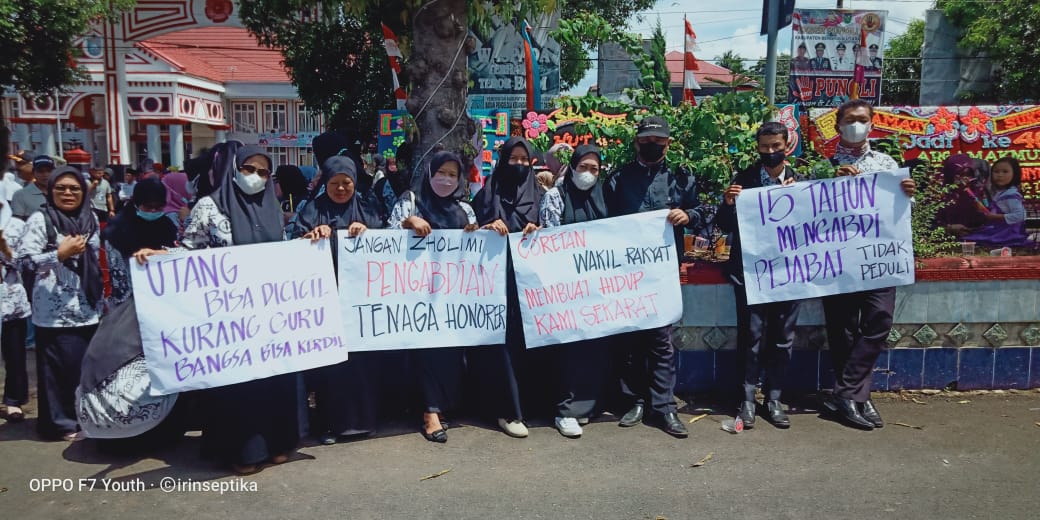 UTANG
BISA DICICIL
KURANG GURU
BANGSA BISA KERDIL
JANGAN ZHOLIMI
PENGABDIAN
TENAGA HONORER
CORETAN
WAKIL RAKYAT
MEMBUAT HIDUP
KAMI SEKARAT
15 TAHUN
MENGABDI
PEJABAT TIDAK
PEDULI
PUNGLI
Jadi ke
OPPO F7 Youth · ©irinseptika